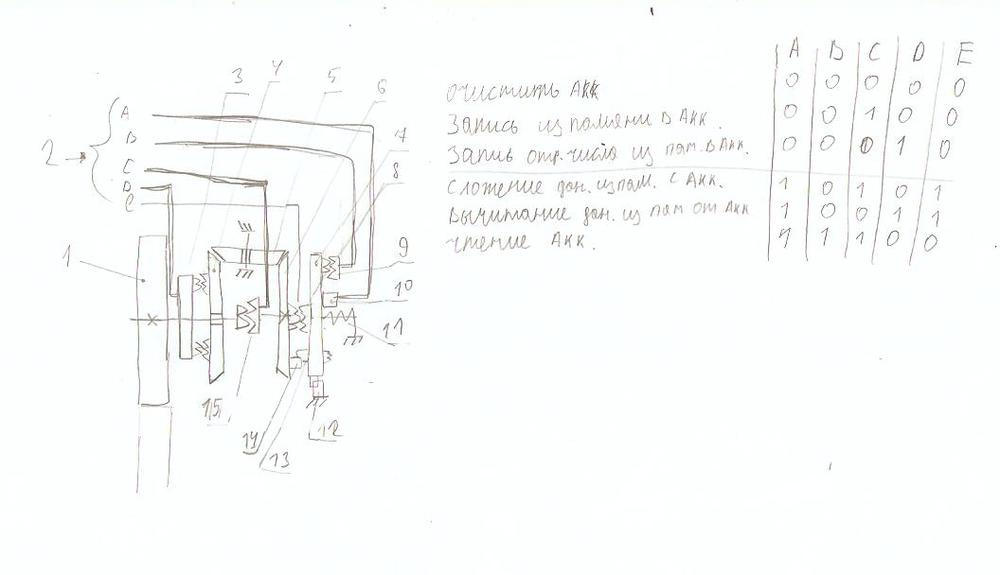 A B C D E
очистить Акк 0 0 0 0 0
Запись из памяти в Акк. 0 0 1 0 0
Запиь отр. числа из пам. в Акк. 0 0 0 1 0
Сложение дан. из пам. с Акк. 1 0 1 0 1
Вычитание дан. из пам от Акк 1 0 0 1 1
чтение Акк. 1 1 1 0 0
3 4 5 6 7 8
A
B
2
C
D
E
1
9
10
11
15
14
13
12